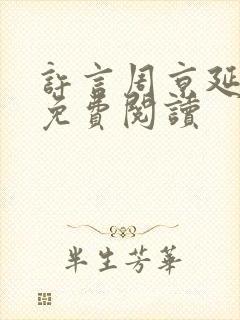 許言周京延
免費閱讀
半生芳華